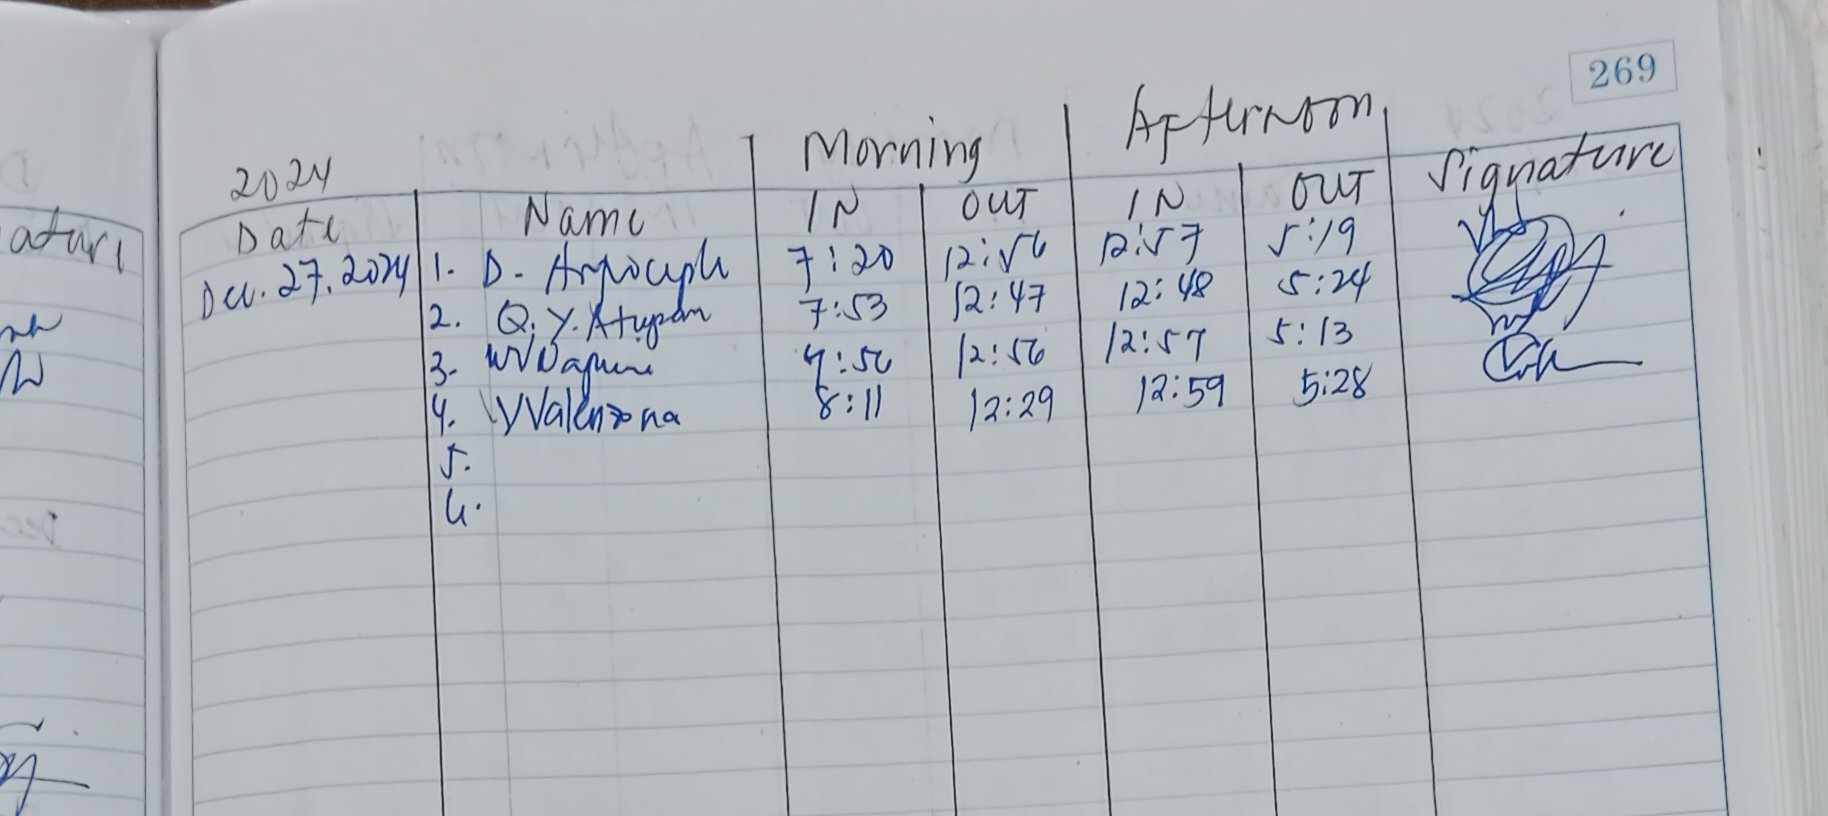 269
2024 Morning Afternoon
Date Name IN OUT IN OUT Signature
Dec. 27, 2024 1. D. 7:20 12:56 12:57 5:19
2. Q. Y. Atupan 7:53 12:47 12:48 5:24
3. 7:56 12:56 12:57 5:13
4. VYValenzona 8:11 12:29 12:59 5:28
5.
6.